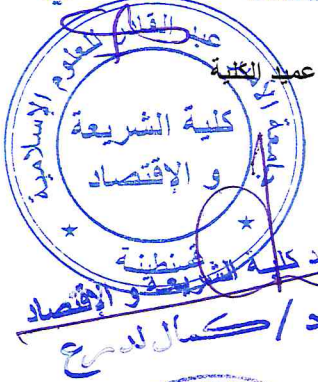 عميد الكلية
جامعة الأمير عبد القادر للعلوم الإسلامية
كلية الشريعة
و الإقتصاد
قسنطينة
كلية الشريعة و الإقتصاد
د / كمال لدرع